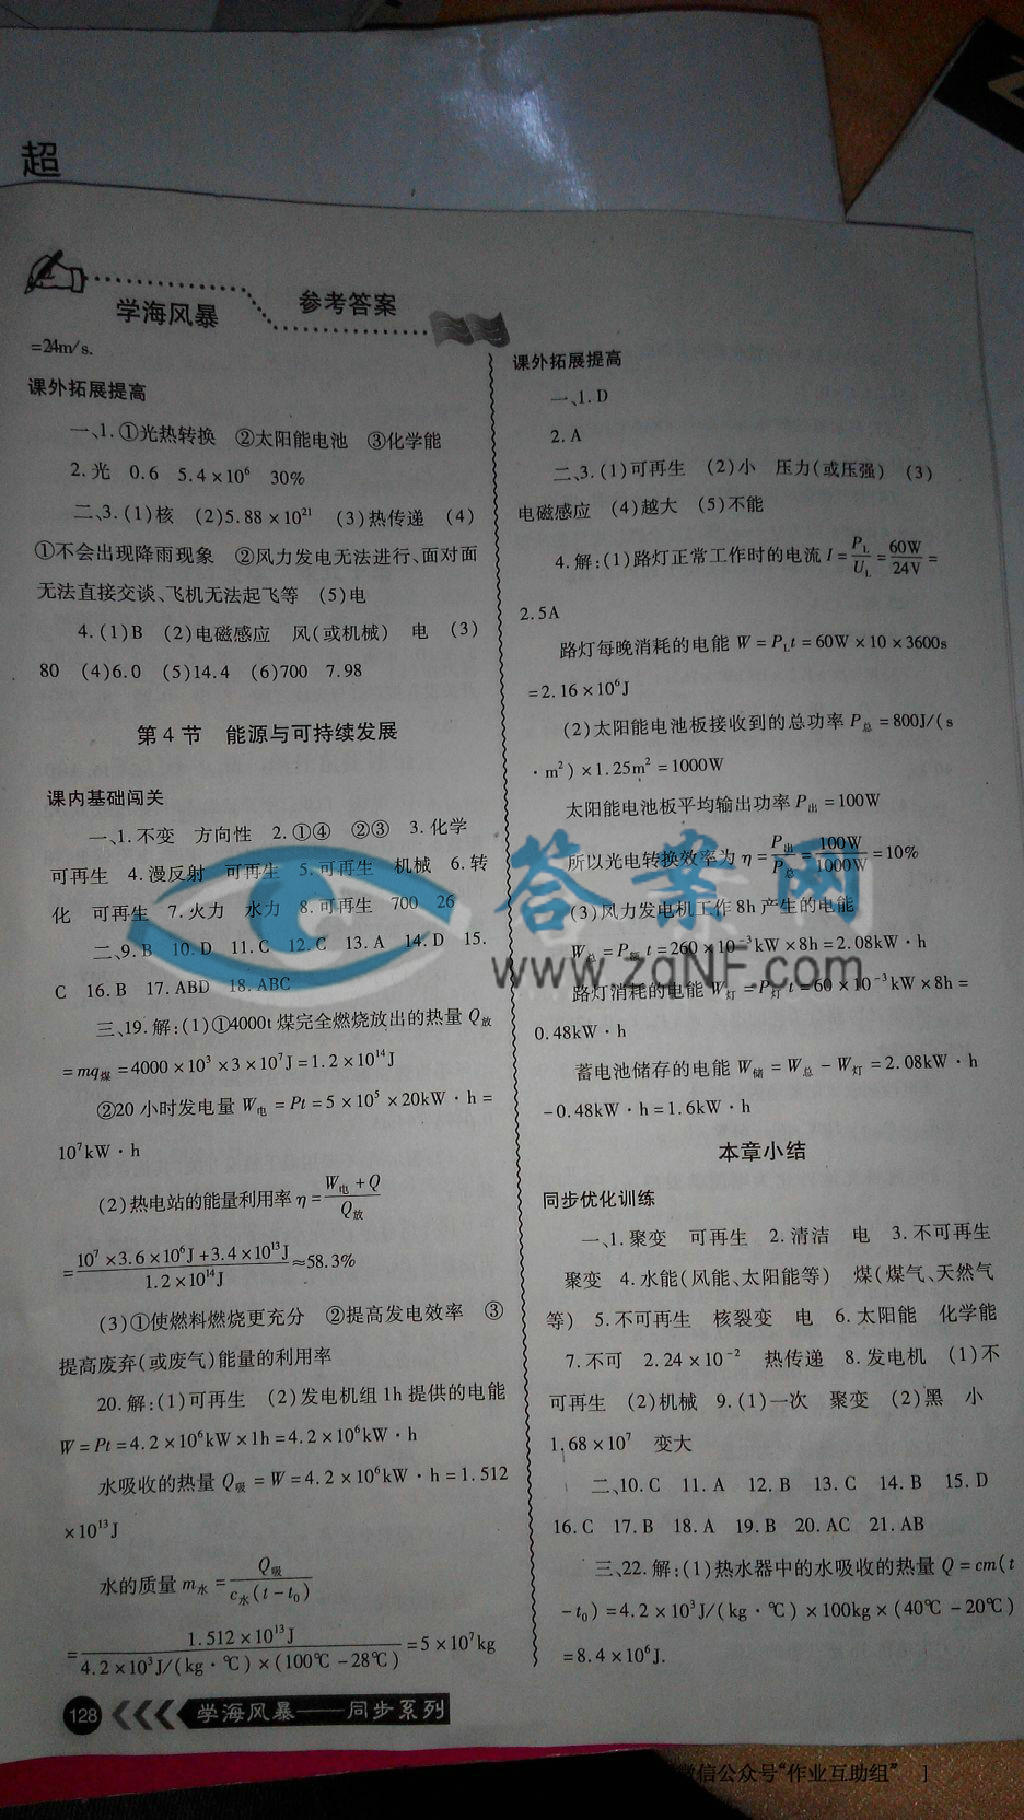 超
学海风暴
参考答案
=24m/s.
课外拓展提高
一、1.①光热转换 ②太阳能电池 ③化学能
2.光 0.6 5.4×10⁶ 30%
二、3.(1)核 (2)5.88×10²¹ (3)热传递 (4)
①不会出现降雨现象 ②风力发电无法进行、面对面
无法直接交谈、飞机无法起飞等 (5)电
4.(1)B (2)电磁感应 风(或机械) 电 (3)
80 (4)6.0 (5)14.4 (6)700 7.98
第4节 能源与可持续发展
课内基础闯关
一、1.不变 方向性 2.①④ ②③ 3.化学
可再生 4.漫反射 可再生 5.可再生 机械 6.转
化 可再生 7.火力 水力 8.可再生 700 26
二、9.B 10.D 11.C 12.C 13.A 14.D 15.
C 16.B 17.ABD 18.ABC
三、19.解:(1)①4000t煤完全燃烧放出的热量Q放
=mq煤=4000×10³×3×10⁷J=1.2×10¹⁴J
②20小时发电量W电=Pt=5×10⁵×20kW·h=
10⁷kW·h
(2)热电站的能量利用率η=(W电+Q)/Q放
=(10⁷×3.6×10⁶J+3.4×10¹³J)/(1.2×10¹⁴J)≈58.3%
(3)①使燃料燃烧更充分 ②提高发电效率 ③
提高废弃(或废气)能量的利用率
20.解:(1)可再生 (2)发电机组1h提供的电能
W=Pt=4.2×10⁶kW×1h=4.2×10⁶kW·h
水吸收的热量Q吸=W=4.2×10⁶kW·h=1.512
×10¹³J
水的质量m水=Q吸/(c水(t-t₀))
=1.512×10¹³J/(4.2×10³J/(kg·℃)×(100℃-28℃))=5×10⁷kg
128
学海风暴——同步系列
课外拓展提高
一、1.D
2.A
二、3.(1)可再生 (2)小 压力(或压强) (3)
电磁感应 (4)越大 (5)不能
4.解:(1)路灯正常工作时的电流I=P_L/U_L=60W/24V=
2.5A
路灯每晚消耗的电能W=P_Lt=60W×10×3600s
=2.16×10⁶J
(2)太阳能电池板接收到的总功率P总=800J/(s
·m²)×1.25m²=1000W
太阳能电池板平均输出功率P出=100W
所以光电转换效率为η=P出/P总=100W/1000W=10%
(3)风力发电机工作8h产生的电能
W总=P额t=260×10⁻³kW×8h=2.08kW·h
路灯消耗的电能W灯=P灯t=60×10⁻³kW×8h=
0.48kW·h
蓄电池储存的电能W储=W总-W灯=2.08kW·h
-0.48kW·h=1.6kW·h
本章小结
同步优化训练
一、1.聚变 可再生 2.清洁 电 3.不可再生
聚变 4.水能(风能、太阳能等) 煤(煤气、天然气
等) 5.不可再生 核裂变 电 6.太阳能 化学能
7.不可 2.24×10⁻² 热传递 8.发电机 (1)不
可再生 (2)机械 9.(1)一次 聚变 (2)黑 小
1.68×10⁷ 变大
二、10.C 11.A 12.B 13.C 14.B 15.D
16.C 17.B 18.A 19.B 20.AC 21.AB
三、22.解:(1)热水器中的水吸收的热量Q=cm(t
-t₀)=4.2×10³J/(kg·℃)×100kg×(40℃-20℃)
=8.4×10⁶J.
答案网
www.zqNF.com
微信公众号“作业互助组” ]